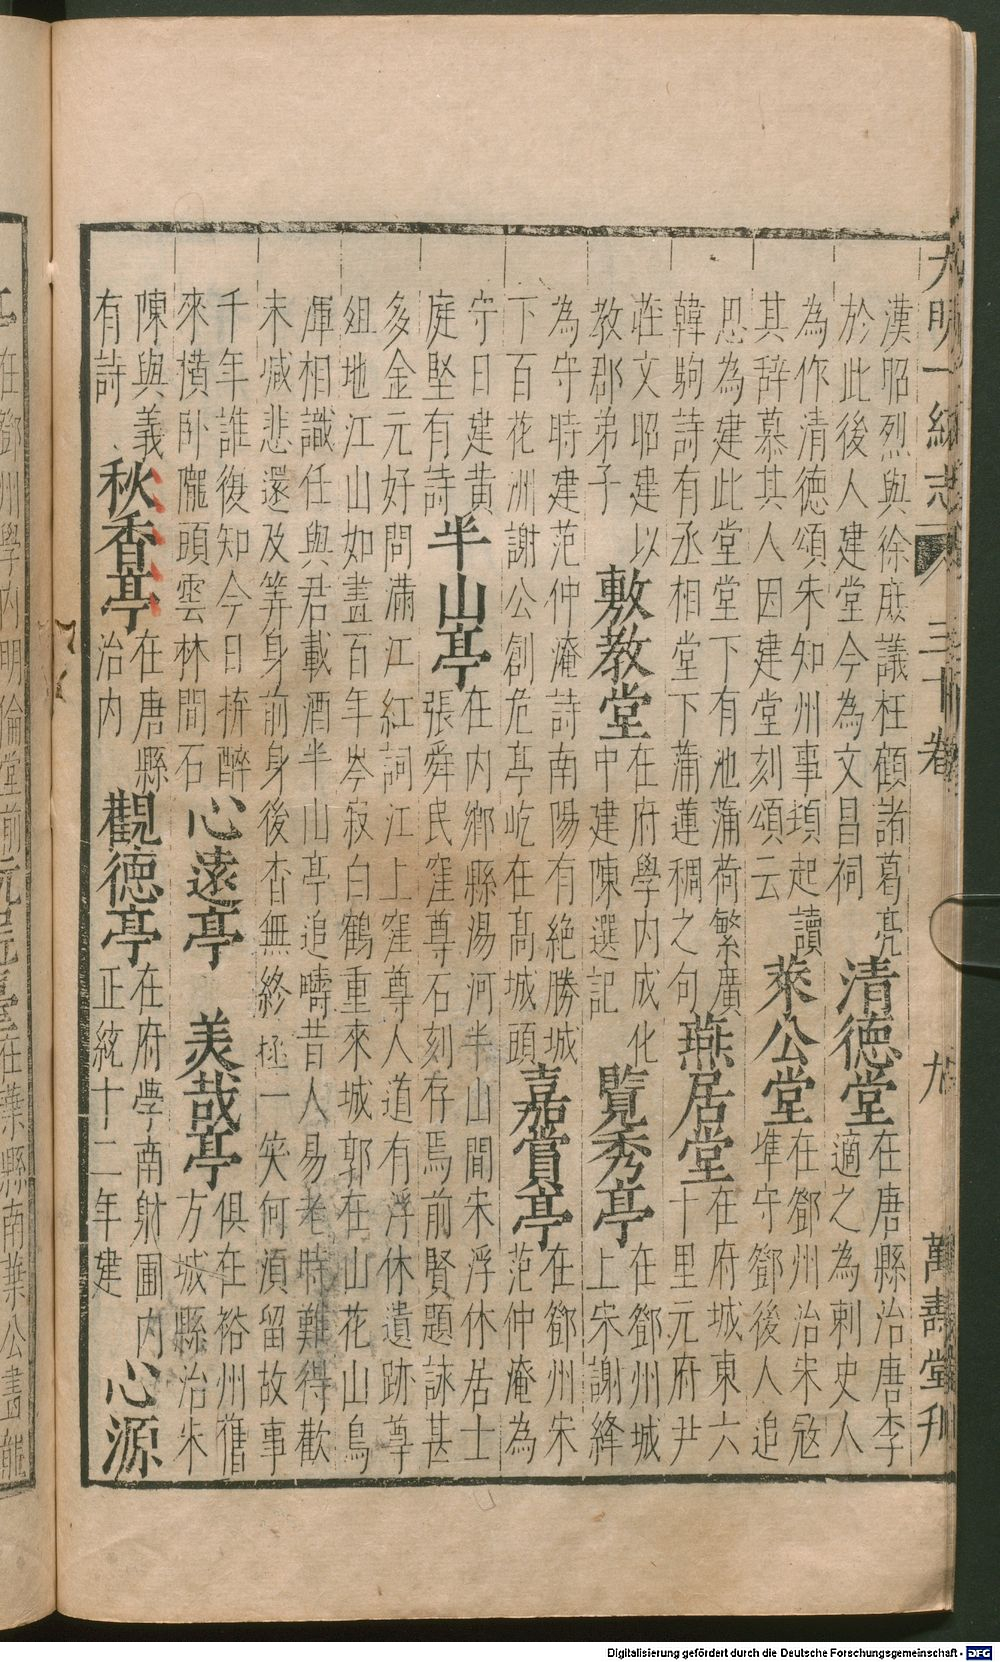 大明一統志 三十卷 九 萬壽堂刋
漢昭烈與徐庶議枉顧諸葛亮
於此後人建堂今為文昌祠
清德堂
在唐縣治唐李
適之為刺史人
為作清德頌朱知州事頊起讀
其辭慕其人因建堂刻頌云
萊公堂
在鄧州治宋㓂
凖守鄧後人追
思為建此堂堂下有池蒲荷繁廣
韓駒詩有丞相堂下蒲蓮稠之句
燕居堂
在府城東六
十里元府尹
莊文昭建以
教郡弟子
敷教堂
在府學内成化
中建陳選記
覽秀亭
在鄧州城
上宋謝絳
為守時建范仲淹詩南陽有絶勝城
下百花洲謝公創危亭屹在髙城頭
嘉賞亭
在鄧州宋
范仲淹為
守日建黄
庭堅有詩
半山亭
在内鄉縣湯河半山間宋浮休居士
張舜民窪尊石刻存焉前賢題詠甚
多金元好問滿江紅詞江上窪尊人道有浮休遺跡尊
俎地江山如畵百年岑寂白鶴重來城郭在山花山鳥
渾相識任與君載酒半山亭追疇昔人易老時難得歡
未減悲還及筭身前身後杳無終極一笑何湏留故事
千年誰復知今日拚醉
來横卧隴頭雲林間石
心遠亭 美哉亭
俱在裕州舊
方城縣治朱
陳與義
有詩
秋香亭
在唐縣
治内
觀德亭
在府學南射圃内
正統十二年建
心源
在鄧州學内明倫堂前
在葉縣南葉公畫龍